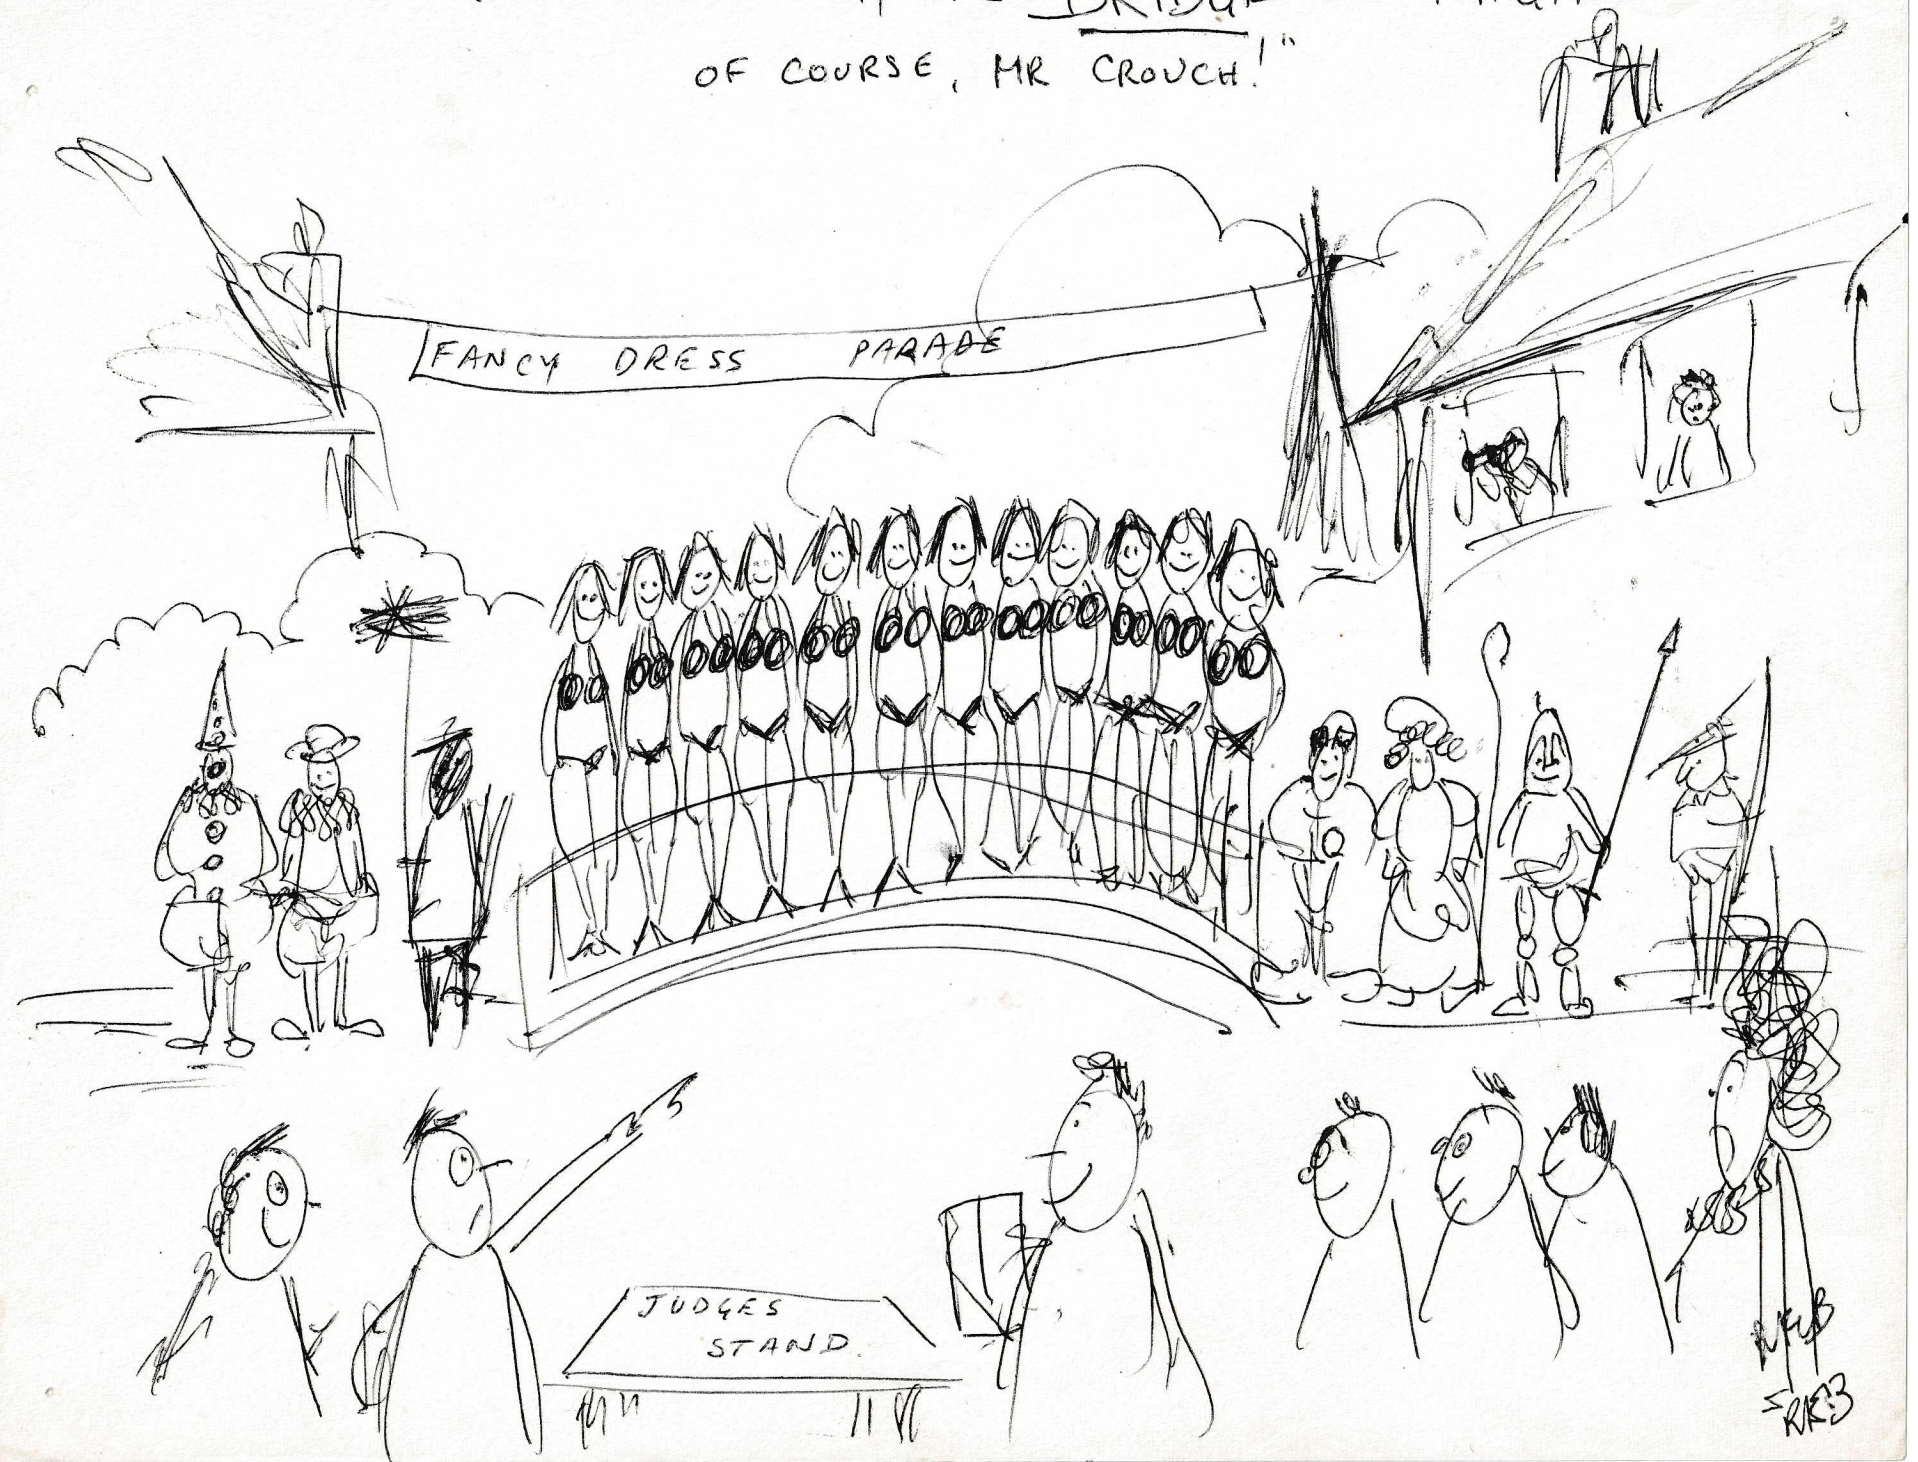 BRIDGE
OF COURSE, MR CROUCH!"
FANCY DRESS PARADE
JUDGES
STAND.